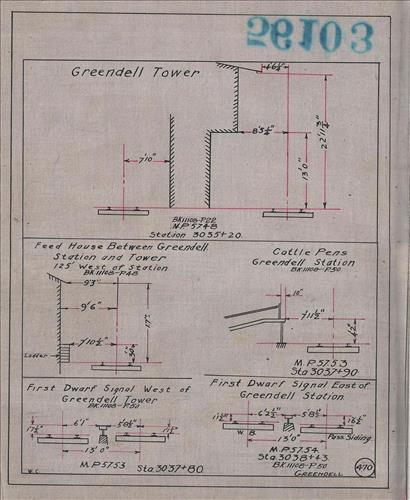 56103
Greendell Tower
4'6¼"
8'5¼"
22'11¾"
7'10"
13'0"
BK11108-P22
M.P.57.48
Station 3035+20
Feed House Between Greendell
Station and Tower
125' West of Station
BK11108-P48
9'3"
9'6"
17'
7'10½"
Ladder
Cattle Pens
Greendell Station
BK11108-P50
10"
7'11½"
4'2"
M.P.57.53
Sta.3037+90
First Dwarf Signal West of
Greendell Tower
6'1"
5'0½"
17½"
13'0"
M.P.57.53 Sta.3037+80
W.C.
First Dwarf Signal East of
Greendell Station
6'2½"
5'8½"
16½"
W.B.
13'0"
Pass. Siding
M.P.57.54
Sta.3038+43
BK11108-P50
Greendell
470